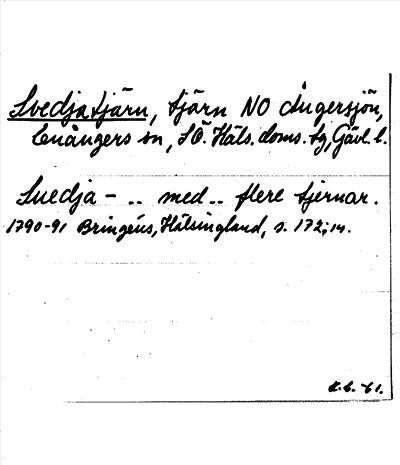 Svedjatjärn, tjärn NO Ängersjön,
Enångers sn, SÖ. Häls. doms. tg, Gävl. l.
Suedja - .. med .. flere tjernar.
1790-91 Bringéus, Hälsingland, s. 172; m.
K.L. -61.